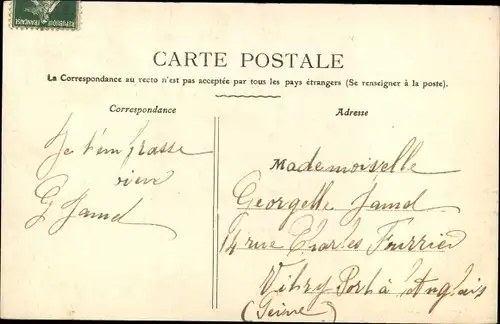 RÉPUBLIQUE FRANÇAISE
CARTE POSTALE
La Correspondance au recto n'est pas acceptée par tous les pays étrangers (Se renseigner à la poste).
Correspondance
Adresse
Je t'embrasse
vien
G Jamel
Mademoiselle
Georgette Jamel
14 rue Charles Fourrier
Vitry Port à Anglais
(Seine)